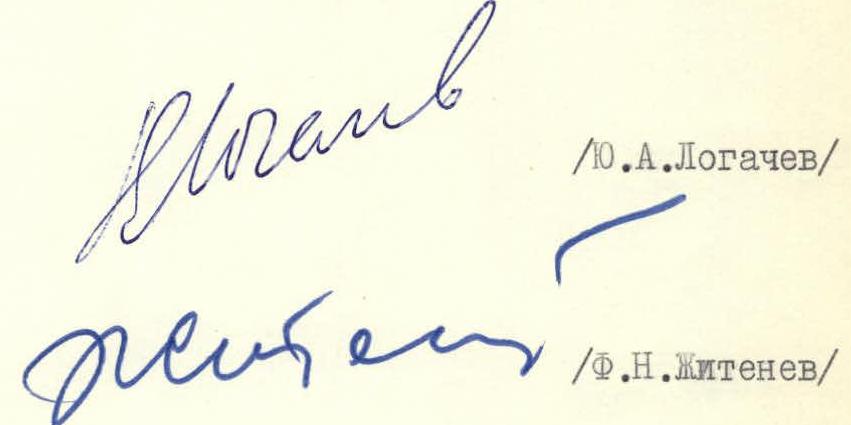 Логачев /Ю.А.Логачев/
Житенев /Ф.Н.Житенев/